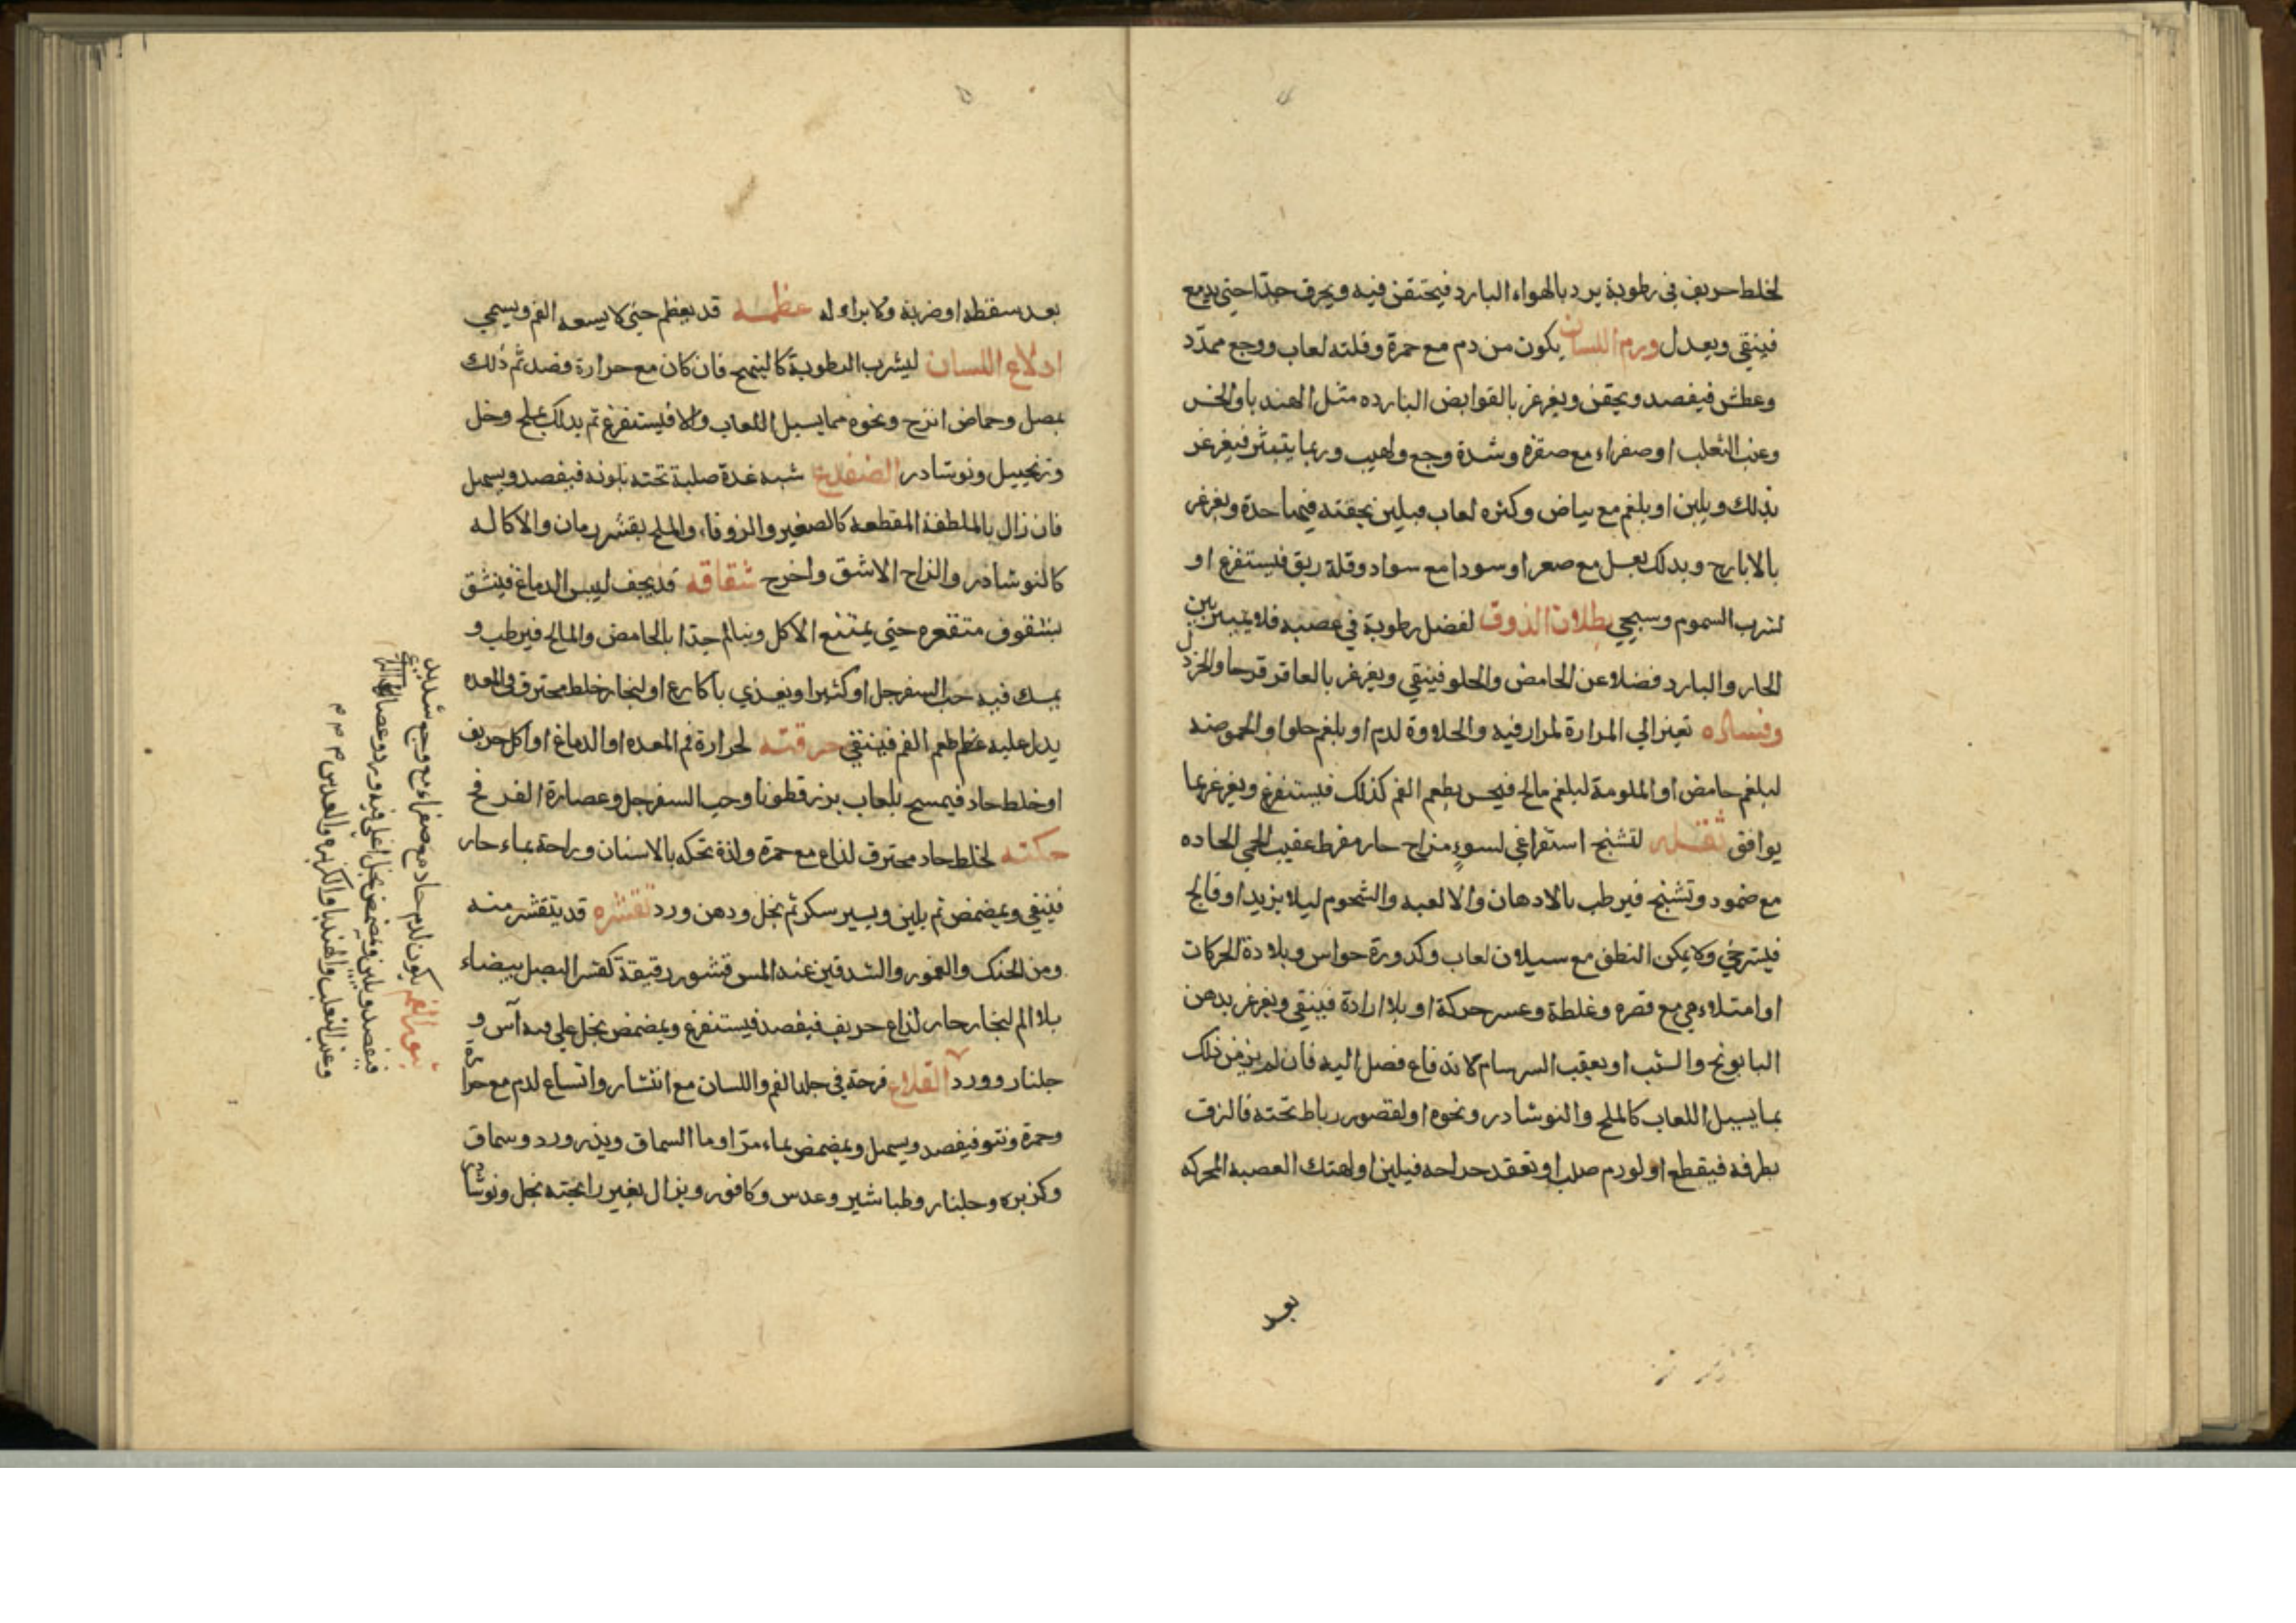 لخلط حريف في رطوبة يرد بالهواء البارد فيحتقن فيه ويحرق جدا حتي يدمع
فينقي ويعدل ورم اللسان يكون من دم مع حمرة وقلته لعاب ووجع ممدّد
وعطش فيفصد ويحقن ويغرغر بالقوابض البارده مثل الهندبا والخس
وعنب الثعلب او صفراء مع صفرة وشدة وجع ولهيب وربما يتبثر فيغرغر
بذلك ويلين او بلغم مع بياض وكثره لعاب فيلين بحقنه فيها حدة ويغرغر
بالايارج ويدلك بعسل مع صعتر او سودا مع سواد وقلة ريق فيستفرغ او
لشرب السموم وسيجي بطلان الذوق لفضل رطوبة في عصبه فلا يتبين بين
الحار والبارد فضلا عن الحامض والحلو فينقي ويغرغر بالعاقر قرحا والخردل
وفساده تغير الي المرارة لمرار فيه والحلاوة لدم او بلغم حلو او الحموضه
لبلغم حامض او الملوحة لبلغم مالح فيحس بطعم الفم كذلك فيستفرغ ويغرغر بما
يوافق ثقله لتشنج استفراغي لسوء مزاج حار مفرط عقيب الحمي الحاده
مع ضمور وتشنج فيرطب بالادهان والالعبه والشحوم ليلا يزيد او فالج
فيسترخي ولا يمكن النطق مع سيلان لعاب وكدورة حواس وبلادة الحركات
او امتلاءي مع قصره وغلظة وعسر حركة او بلا ارادة فينقي ويغرغر بدهن
البابونج والشبت او يعقب السرسام لاندفاع فضل اليه فان لم يزمن ذلك
بما يسيل اللعاب كالملح والنوشادر ونحوه او لقصور رباط تحته فالزق
بطرفه فيقطع او لورم صلب او تعقد جراحه فيلين او لهتك العصبه المحركه
بعد
بعد سقطه او ضربة ولا براء له عظمه قد يعظم حتي لا يسعه الفم ويسمي
ادلاع اللسان ليشرب الرطوبة كاليتهج فان كان مع حرارة فصد ثم ذلك
بمصل وحماض اترج ونحوه مما يسيل اللعاب والا فيستفرغ ثم يدلك بملح وخل
وزنجبيل ونوشادر الضفدع شبه غدة صلبة تحته بلونه فيفصد ويسهل
فان زال بالملطفة المقطعه كالصعتر والزوفا والملح بقشر رمان والاكاله
كالنوشادر والزاج الاشق واخرج شقاقه قد يجف ليبس الدماغ فينشق
بشقوق متقعره حتي يمتنع الاكل ويتالم جدا بالحامض والمالح فيرطب و
يمسك فيه حب السفرجل او كثيرا ويغذي باكارع او لبخار خلط محترق في المعده
يدل عليه طعم الفم فينقي حرقته لحرارة فم المعده او الدماغ او اكل حريف
او خلط حاد فيمسح بلعاب بزرقطونا وحب السفرجل وعصارة القرع
حكته لخلط حاد محترق لذاع مع حمرة ولذة تحكه بالاسنان وراحة بماء حار
فينقي ويمضمض ثم بلين ويسير سكر ثم بخل ودهن ورد تقشره قد يتقشر منه
ومن الحنك والعمور والشدقين عند المس قشور رقيقة كقشر البصل بيضاء
بلا الم لبخار حار لذاع حريف فيفصد فيستفرغ ويمضمض بخل علي فيه آس و
جلنار وورد القلاع قرحة في جلد الفم واللسان مع انتشار واتساع لدم مع حرارة
وحمرة ونتو فيفصد ويسهل ويمضمض بماء مرّ او ما السماق ويذر ورد وسماق
وكزبره وجلنار وطباشير وعدس وكافور ويزال بغير رائحته بخل ونوشادر
بثور الفم يكون لدم حاد مع صفراء مع وجع شديد
فيفصد ويلين ويمضمض بخل اغلي فيه ورد وعصا
وعنب الثعلب والهندبا والكزبره والعدس م م م